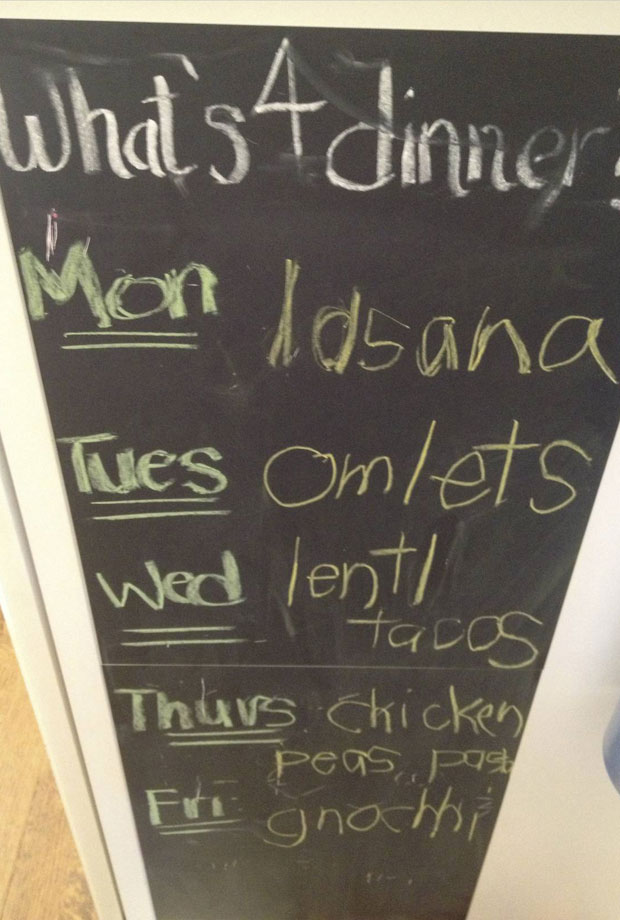 What's 4 dinner?
Mon lasana
Tues omlets
Wed lentl
tacos
Thurs chicken
peas, past
Fri gnochhi